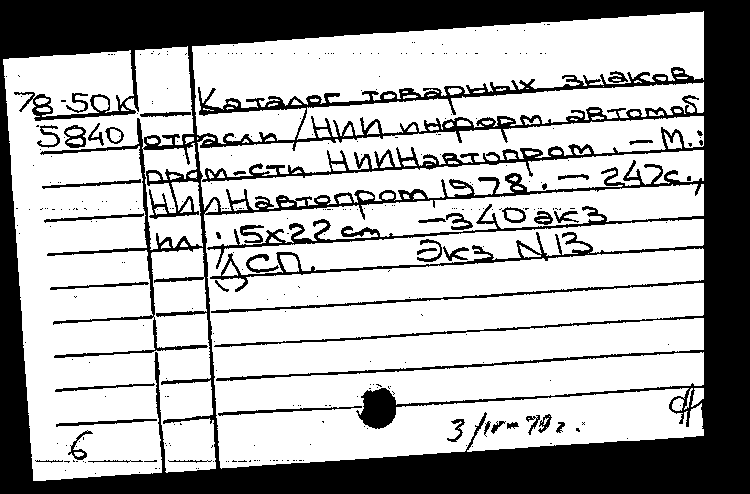 78-50К Каталог товарных знаков
5840 отрасли / НИИ информ. автомоб
пром-сти НИИНавтопром. – М.:
НИИНавтопром, 1978. – 247с.,
ил.; 15х22 см. – 340 экз
ДСП. Экз N 13
6 3/IV-79 г.